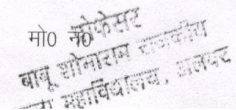 मो0 न0
प्रोफेसर
बाबू शोभाराम राजकीय
कला महाविद्यालय, अलवर